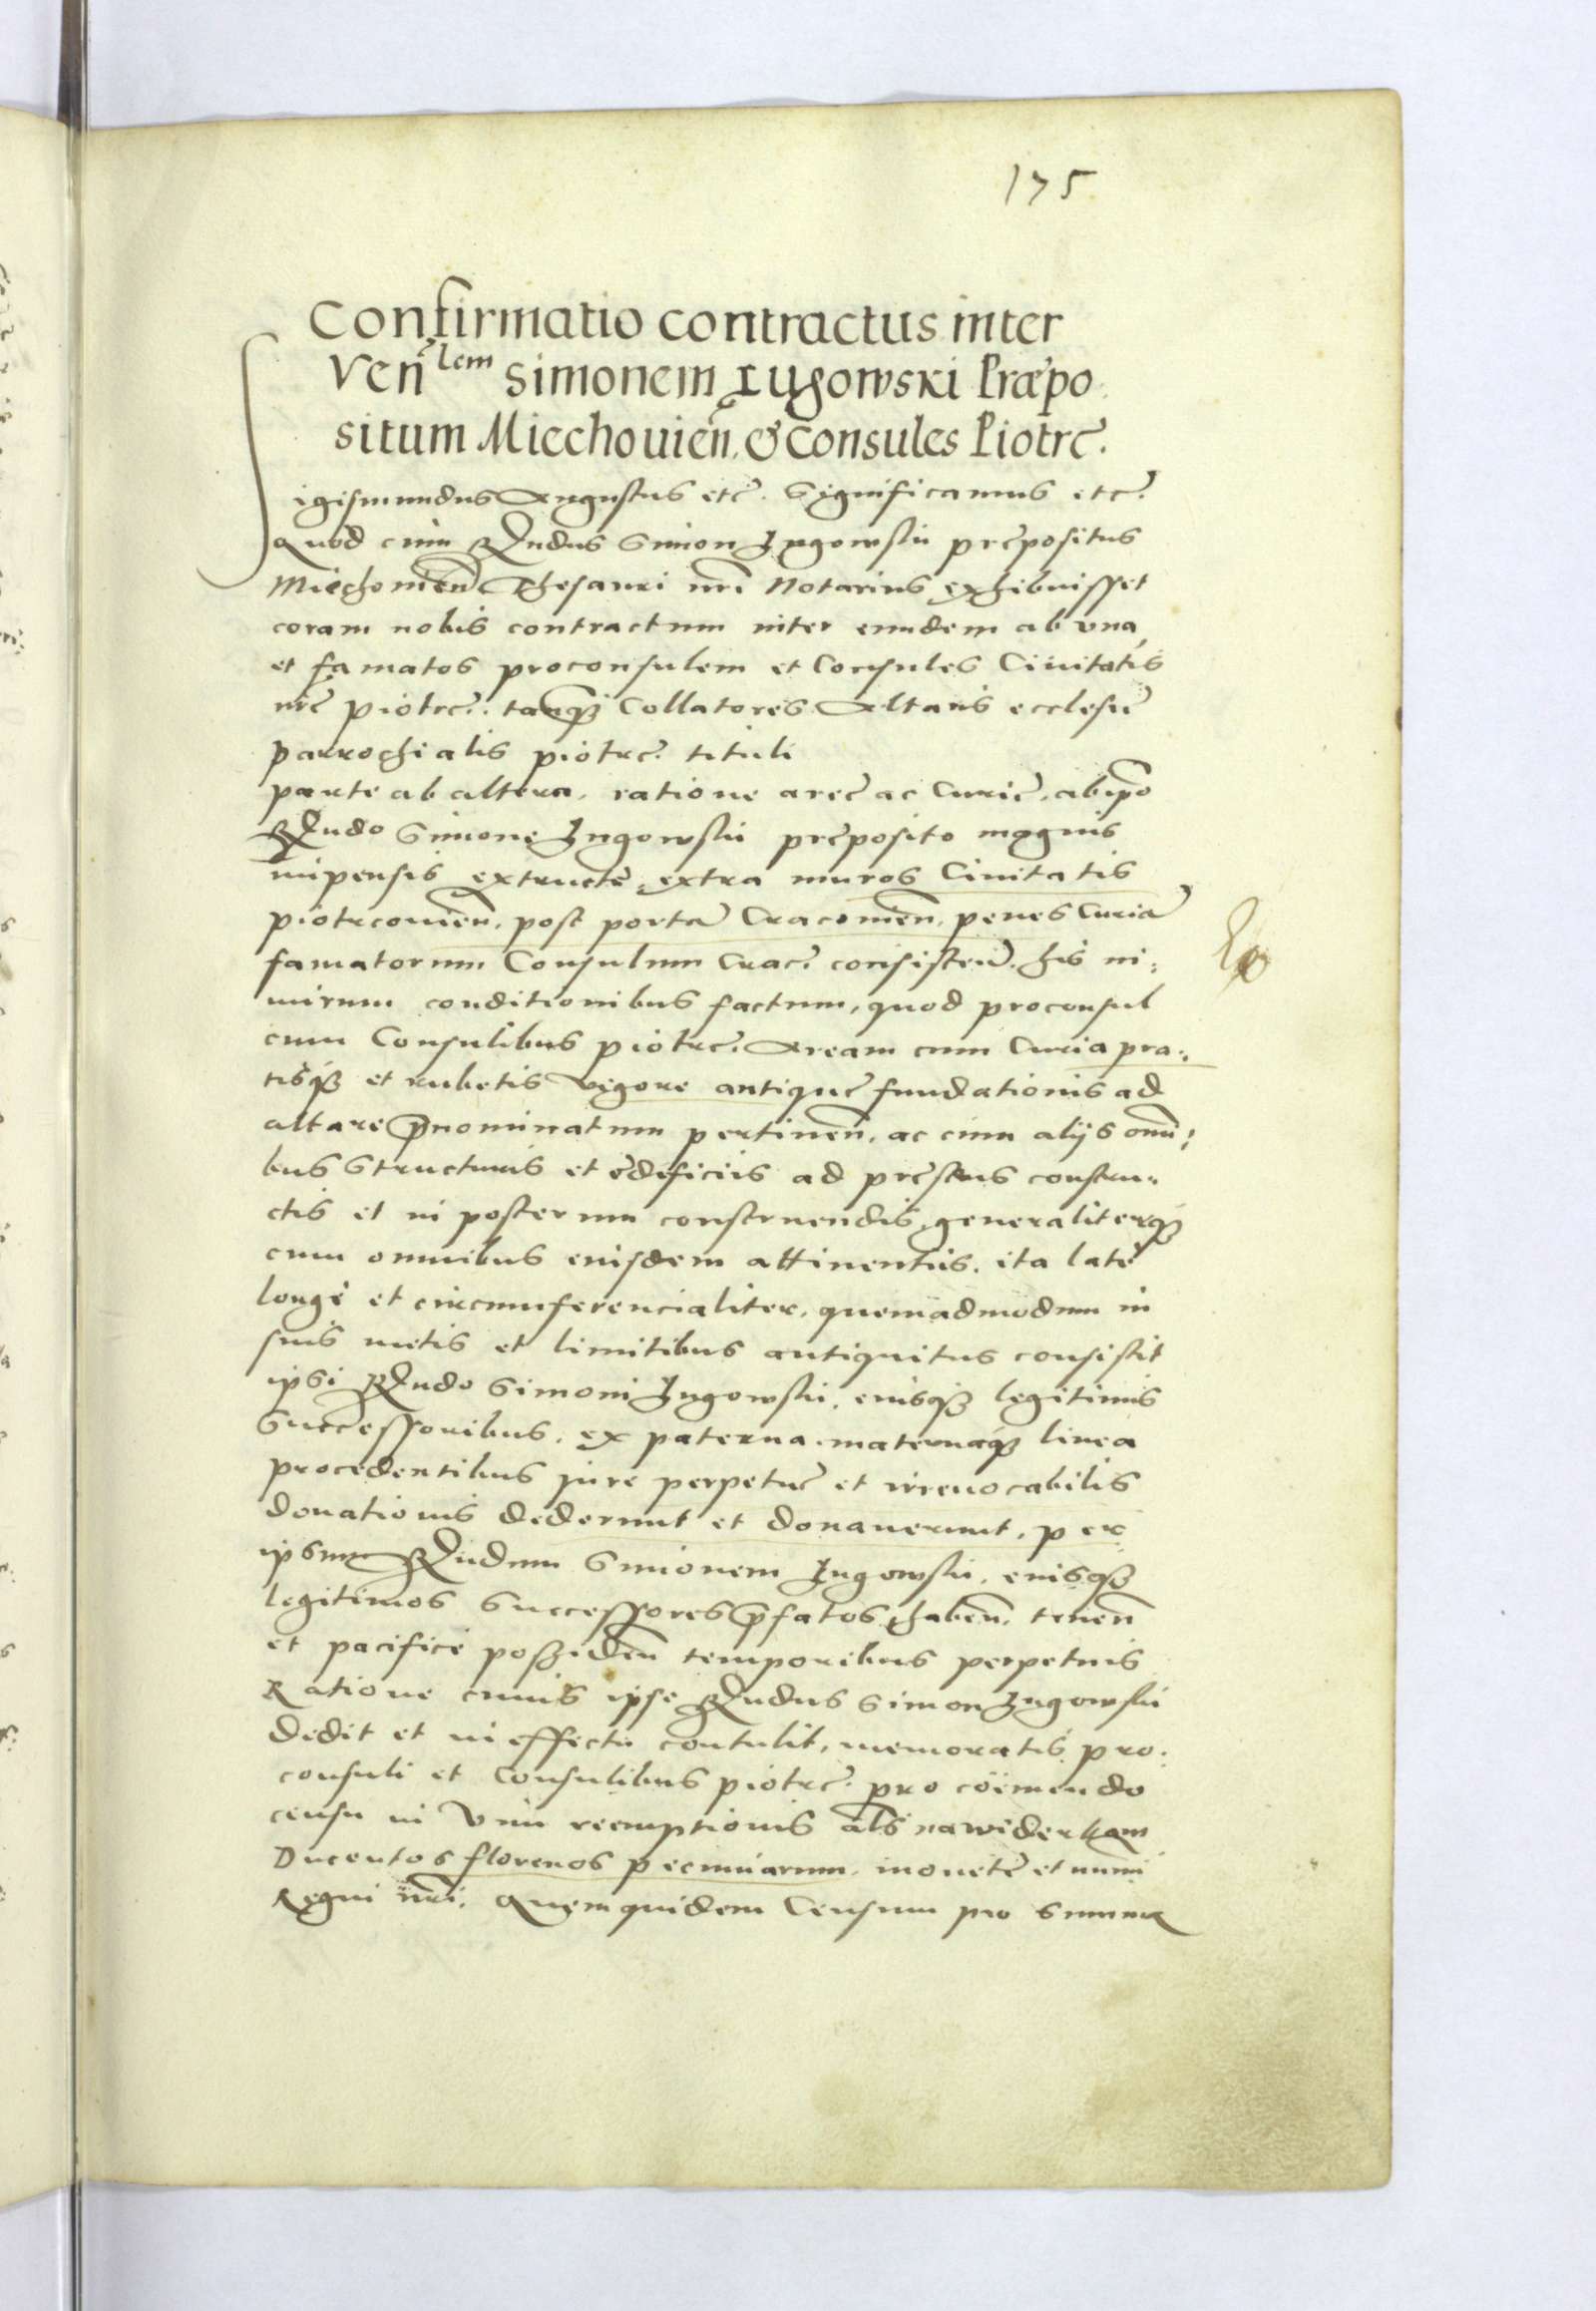 175
Confirmatio contractus inter
Ven̄lem Simonem Iugowski Præpo
situm Miechouien̄. & Consules Piotrc̄.
Sigismundus Augustus etc̄. Significamus etc̄.
Quod cum Rn̄dus Simon Jugowski prępositus
Miechouien̄ Thesauri nr̄i Notarius exhibuisset
coram nobis contractum inter eundem ab vna
et famatos proconsulem et Consules Ciuitatis
nr̄ę piotrc̄. tanq̃ Collatores Altaris ecclesię
parrochialis piotrc̄. tituli
parte ab altera, ratione areę ac Curię, ab ip̄o
Rn̄do Simone Jugowski pręposito magnis
impensis extructę, extra muros Ciuitatis
piotrcouien̄. post portā Cracouien̄. penes Curiā
famatorum Consulum Crac̄. consisteñ. his ni:
mirum conditionibus factum, quod proconsul
cum Consulibus piotrc̄. Aream cum Curia pra:
tisq̃ et rubetis vigore antiquę fundationis ad
altare p̄nominatum pertinen̄. ac cum alijs omni:
bus Structuris et ędificiis ad pręsens constru:
ctis et in posterum construendis, generaliterq̃
cum omnibus eiusdem attinentiis, ita latè
longè et circumferencialiter, quemadmodum in
suis metis et limitibus antiquitus consistit
ipsi Rn̄do Simoni Jugowski, eiusq̃ legitimis
Successoribus, ex paterna maternaq̃ linea
procedentibus jure perpetuę et irreuocabilis
donationis dederunt et donauerunt, per
ipsum Rn̄dum Simonem Jugowski, eiusq̃
legitimos Successores p̄fatos haben̄. tenen̄
et pacificè possiden̄ temporibus perpetuis
Ratione cuius ipse Rn̄dus Simon Jugowski
dedit et in effectu contulit, memoratis pro:
consuli et Consulibus piotrc̄. pro coëmendo
censu in vim reemptionis al̄s na widerkaw
Ducentos florenos pecuniarum, monetę et numi
Regni nr̄i. Quem quidem Censum pro Summa